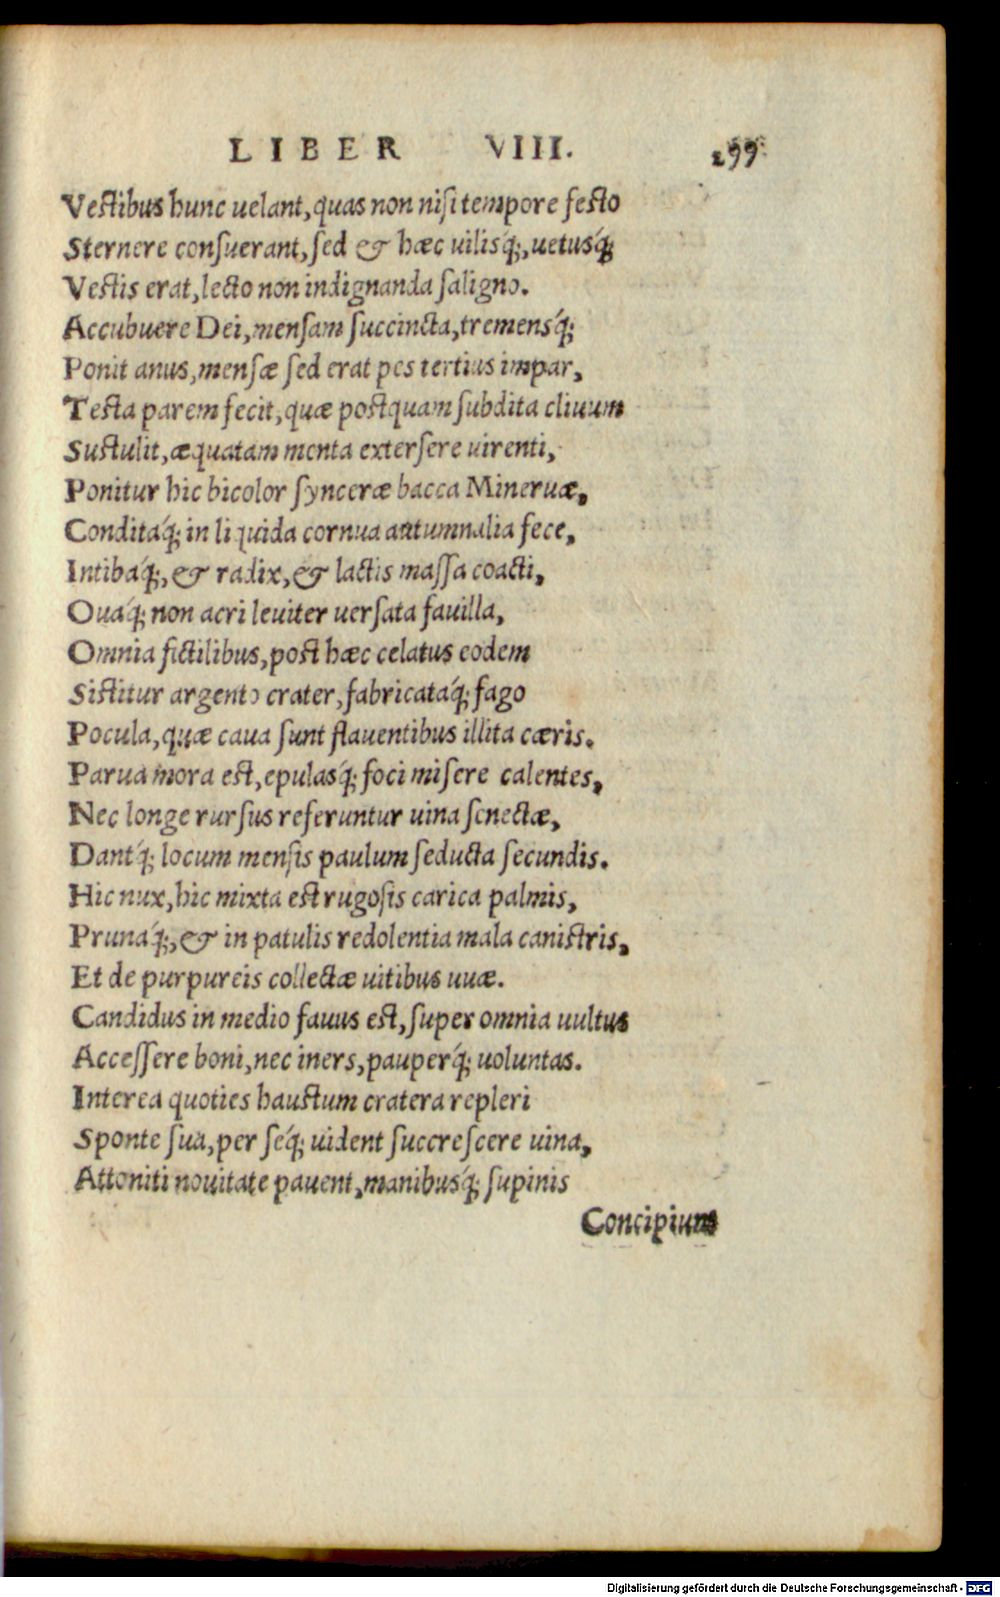 LIBER VIII. 299
Vestibus hunc uelant, quas non nisi tempore festo
Sternere consuerant, sed & hæc uilisq́;, uetusq́;
Vestis erat, lecto non indignanda saligno.
Accubuere Dei, mensam succincta, tremensq́;
Ponit anus, mensæ sed erat pes tertius impar,
Testa parem fecit, quæ postquam subdita cliuum
Sustulit, æquatam menta extersere uirenti,
Ponitur hic bicolor synceræ bacca Mineruæ,
Conditaq́; in liquida cornua autumnalia fece,
Intibaq́;, & radix, & lactis massa coacti,
Ouaq́; non acri leuiter uersata fauilla,
Omnia fictilibus, post hæc celatus eodem
Sistitur argento crater, fabricataq́; fago
Pocula, quæ caua sunt flauentibus illita cæris.
Parua mora est, epulasq́; foci misere calentes,
Nec longe rursus referuntur uina senectæ,
Dantq́; locum mensis paulum seducta secundis.
Hic nux, hic mixta est rugosis carica palmis,
Prunaq́;, & in patulis redolentia mala canistris,
Et de purpureis collectæ uitibus uuæ.
Candidus in medio fauus est, super omnia uultus
Accessere boni, nec iners, pauperq́; uoluntas.
Interea quoties haustum cratera repleri
Sponte sua, per seq́; uident succrescere uina,
Attoniti nouitate pauent, manibusq́; supinis
Concipiunt
Digitalisierung gefördert durch die Deutsche Forschungsgemeinschaft - DFG